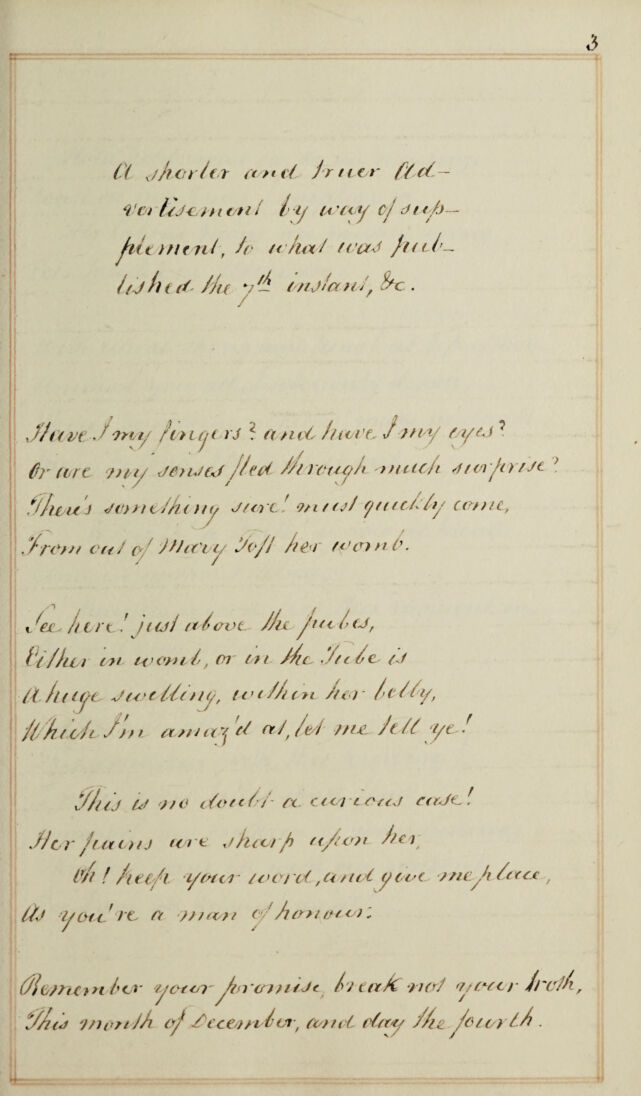 3
A shorter and truer Ad-
vertisement by way of sup-
plement, to what was pub-
lished the 7th instant, &c.
Have I my fingers? and have I my eyes?
Or are my senses fled through much surprise?
There's something sure! must quickly come,
From out of Mary Toft her womb.
See here! just above the pubes,
Either in womb, or in the Tube is
A huge swelling, within her belly,
Which I'm amaz'd at, let me tell ye!
This is no doubt a curious case!
Her pains are sharp upon her,
Oh! keep your word, and give me place,
As you're a man of honour:
Remember your promise, break not your troth,
This month of December, and day the fourth.